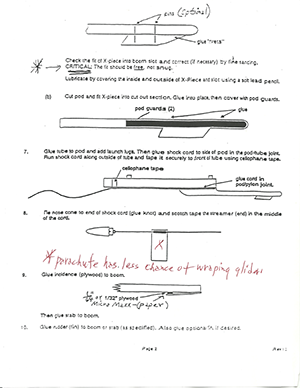 pins (optional)
glue "rivets"
* Check the fit of X-piece into boom slot and correct (if necessary) by fine sanding.
CRITICAL: The fit should be free, not snug.
Lubricate by covering the inside and outside of X-piece and slot using a soft lead pencil.
(b) Cut pod and fit X-piece into cut out section. Glue into place, then cover with pod guards.
pod guards (2) glue
7. Glue tube to pod and add launch lugs. Then glue shock cord to side of pod in the pod-tube joint.
Run shock cord along outside of tube and tape it securely to front of tube using cellophane tape.
cellophane tapes
glue cord in
pod/pylon joint.
8. Tie nose cone to end of shock cord (glue knot) and scotch tape the streamer (end) in the middle
of the cord.
X
* parachute has less chance of wraping glider
9. Glue incidence (plywood) to boom.
1/64 or 1/32" plywood
Then glue stab to boom.
10. Glue rudder (fin) to boom or stab (as specified). Also glue optional fin, if desired.
Page 3